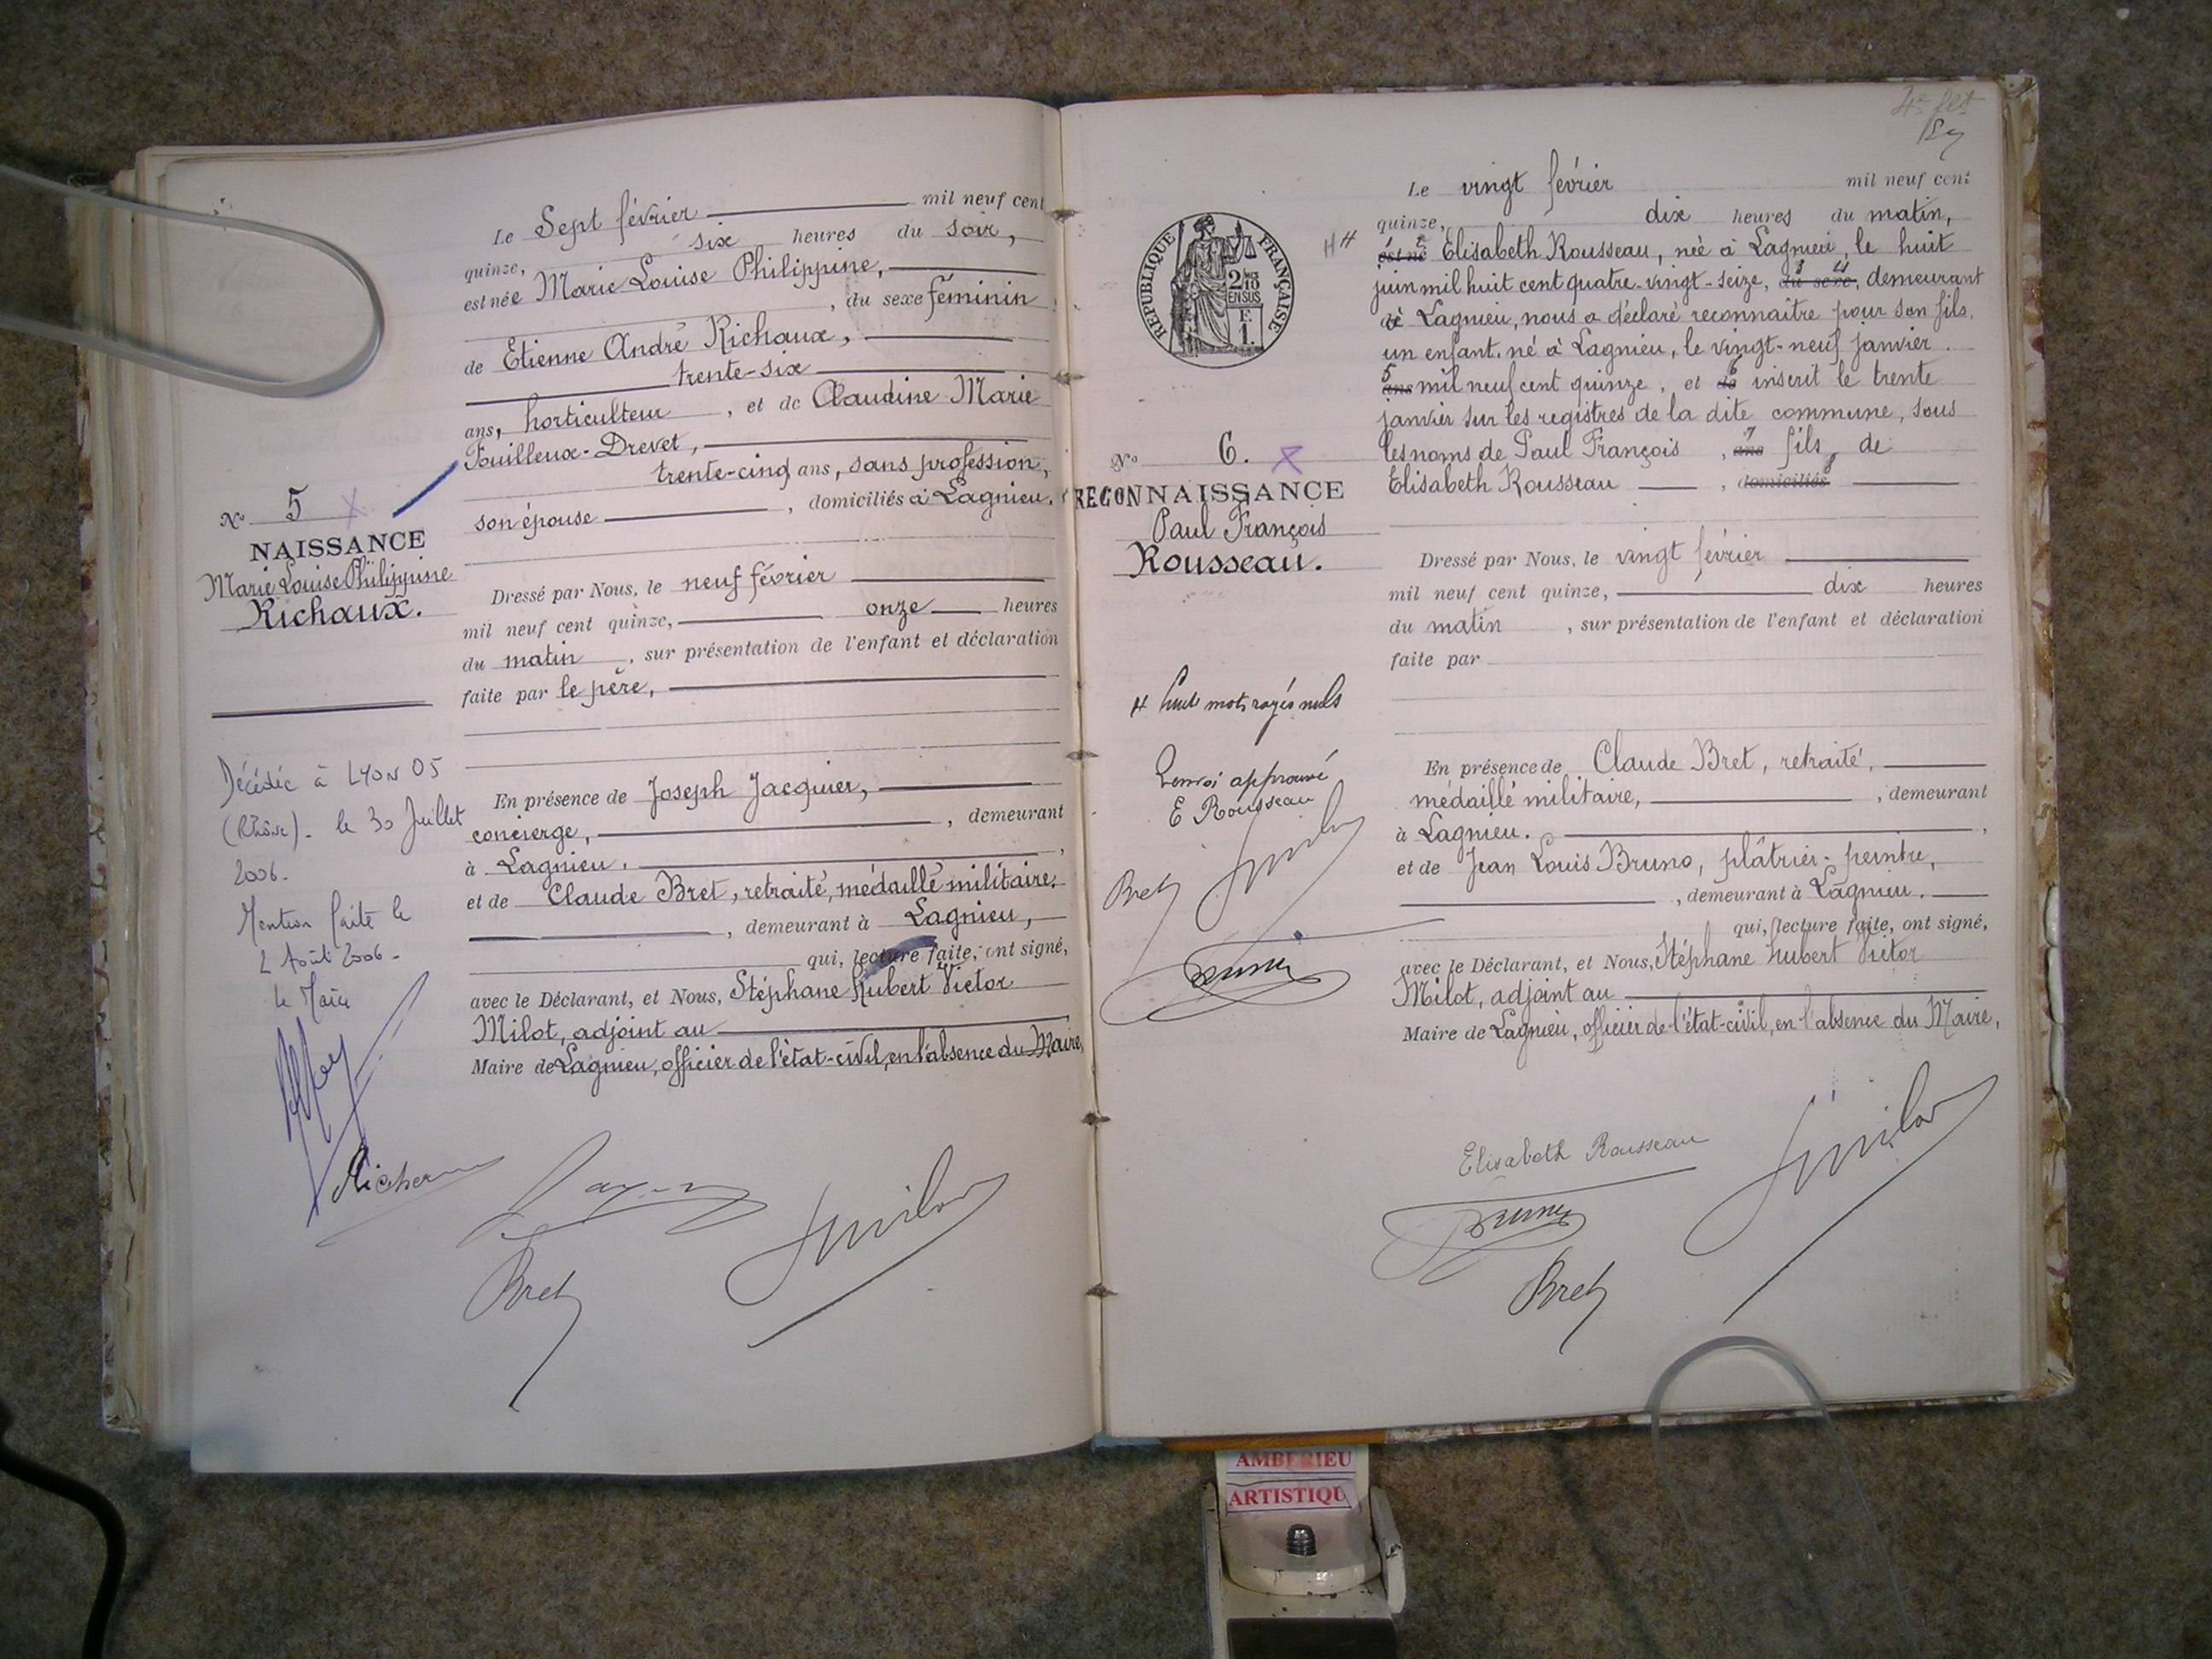 Le Sept février mil neuf cent
quinze, six heures du soir,
est née Marie Louise Philippine,
, du sexe féminin
de Etienne André Richaux,
trente-six
ans, horticulteur , et de Claudine Marie
Fouilleux-Drevet,
trente-cinq ans, sans profession,
son épouse , domiciliés à Lagnieu.
No 5
NAISSANCE
Marie Louise Philippine
Richaux.
Dressé par Nous, le neuf février
mil neuf cent quinze, onze heures
du matin , sur présentation de l'enfant et déclaration
faite par le père,
En présence de Joseph Jacquier,
concierge, , demeurant
à Lagnieu. ,
et de Claude Bret, retraité, médaillé militaire,
, demeurant à Lagnieu,
qui, lecture faite, ont signé,
avec le Déclarant, et Nous, Stéphane Hubert Victor
Milot, adjoint au
Maire de Lagnieu, officier de l'état-civil, en l'absence du Maire,
Décédée à LYON 05
(Rhône). le 30 Juillet
2006.
Mention faite le
2 Août 2006.
Le Maire
Bret
Le vingt février mil neuf cent
quinze, dix heures du matin,
est né Elisabeth Rousseau, née à Lagnieu, le huit
juin mil huit cent quatre-vingt-seize, du sexe, demeurant
à Lagnieu, nous a déclaré reconnaître pour son fils,
un enfant, né à Lagnieu, le vingt-neuf janvier
ans mil neuf cent quinze, et de inscrit le trente
janvier sur les registres de la dite commune, sous
les noms de Paul François , ans fils de
Elisabeth Rousseau , domiciliés
RÉPUBLIQUE FRANÇAISE
No 6.
RECONNAISSANCE
Paul François
Rousseau.
Dressé par Nous, le vingt février
mil neuf cent quinze, dix heures
du matin , sur présentation de l'enfant et déclaration
faite par
huit mots rayés nuls
Renvoi approuvé
E Rousseau
Bret
En présence de Claude Bret, retraité,
médaillé militaire, , demeurant
à Lagnieu. ,
et de Jean Louis Bruno, plâtrier-peintre,
, demeurant à Lagnieu.
qui, lecture faite, ont signé,
avec le Déclarant, et Nous, Stéphane Hubert Victor
Milot, adjoint au
Maire de Lagnieu, officier de l'état-civil, en l'absence du Maire,
Elisabeth Rousseau
Bret
AMBERIEU
ARTISTIQU